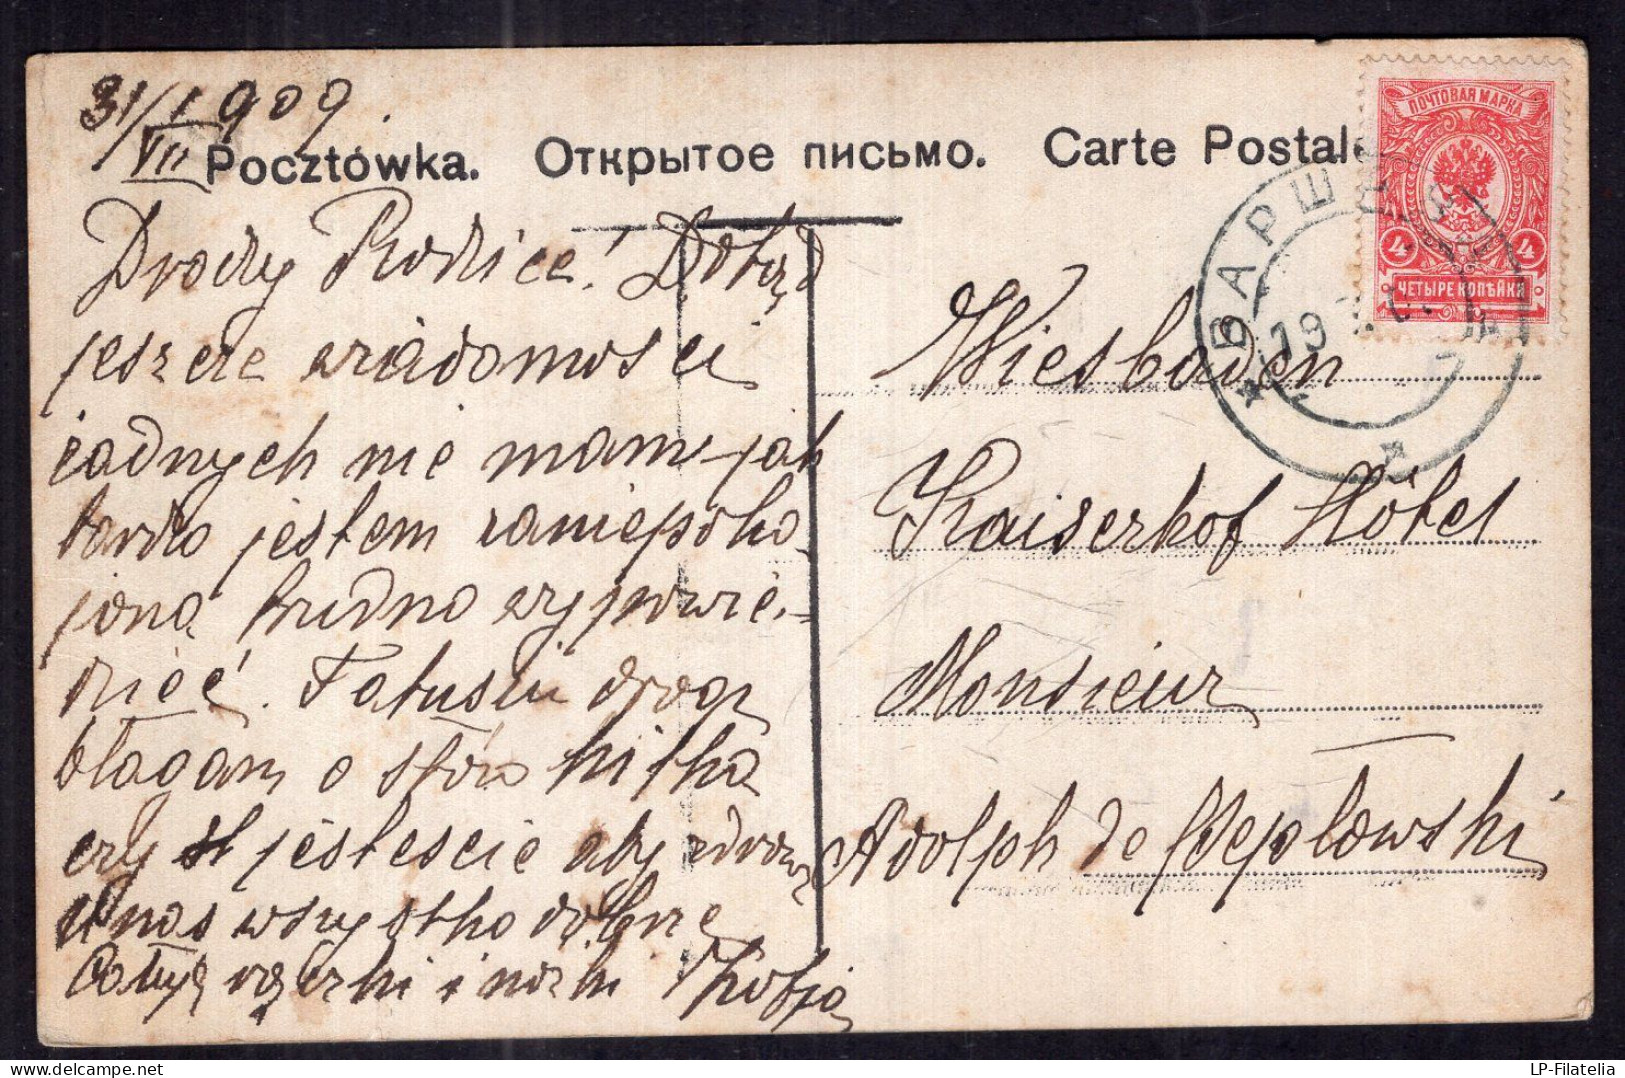 31/I 1909.
VII
Pocztówka. Открытое письмо. Carte Postale
ПОЧТОВАЯ МАРКА
4 4
ЧЕТЫРЕ КОПѢЙКИ
ВАРШАВА
19
Drodzy Rodzice! Dotąd
jeszcze wiadomości
żadnych nie mam jak
bardzo jestem zaniepoko-
jona trudno wypowie-
dzieć. Tatusiu drogi
błagam o słów kilka
czy jesteście aby zdrowi
U nas wszystko dobrze
Całuję rączki i nóżki Zofja
Wiesbaden
Kaiserhof Hôtel
Monsieur
Adolph de
LP-Filatelia